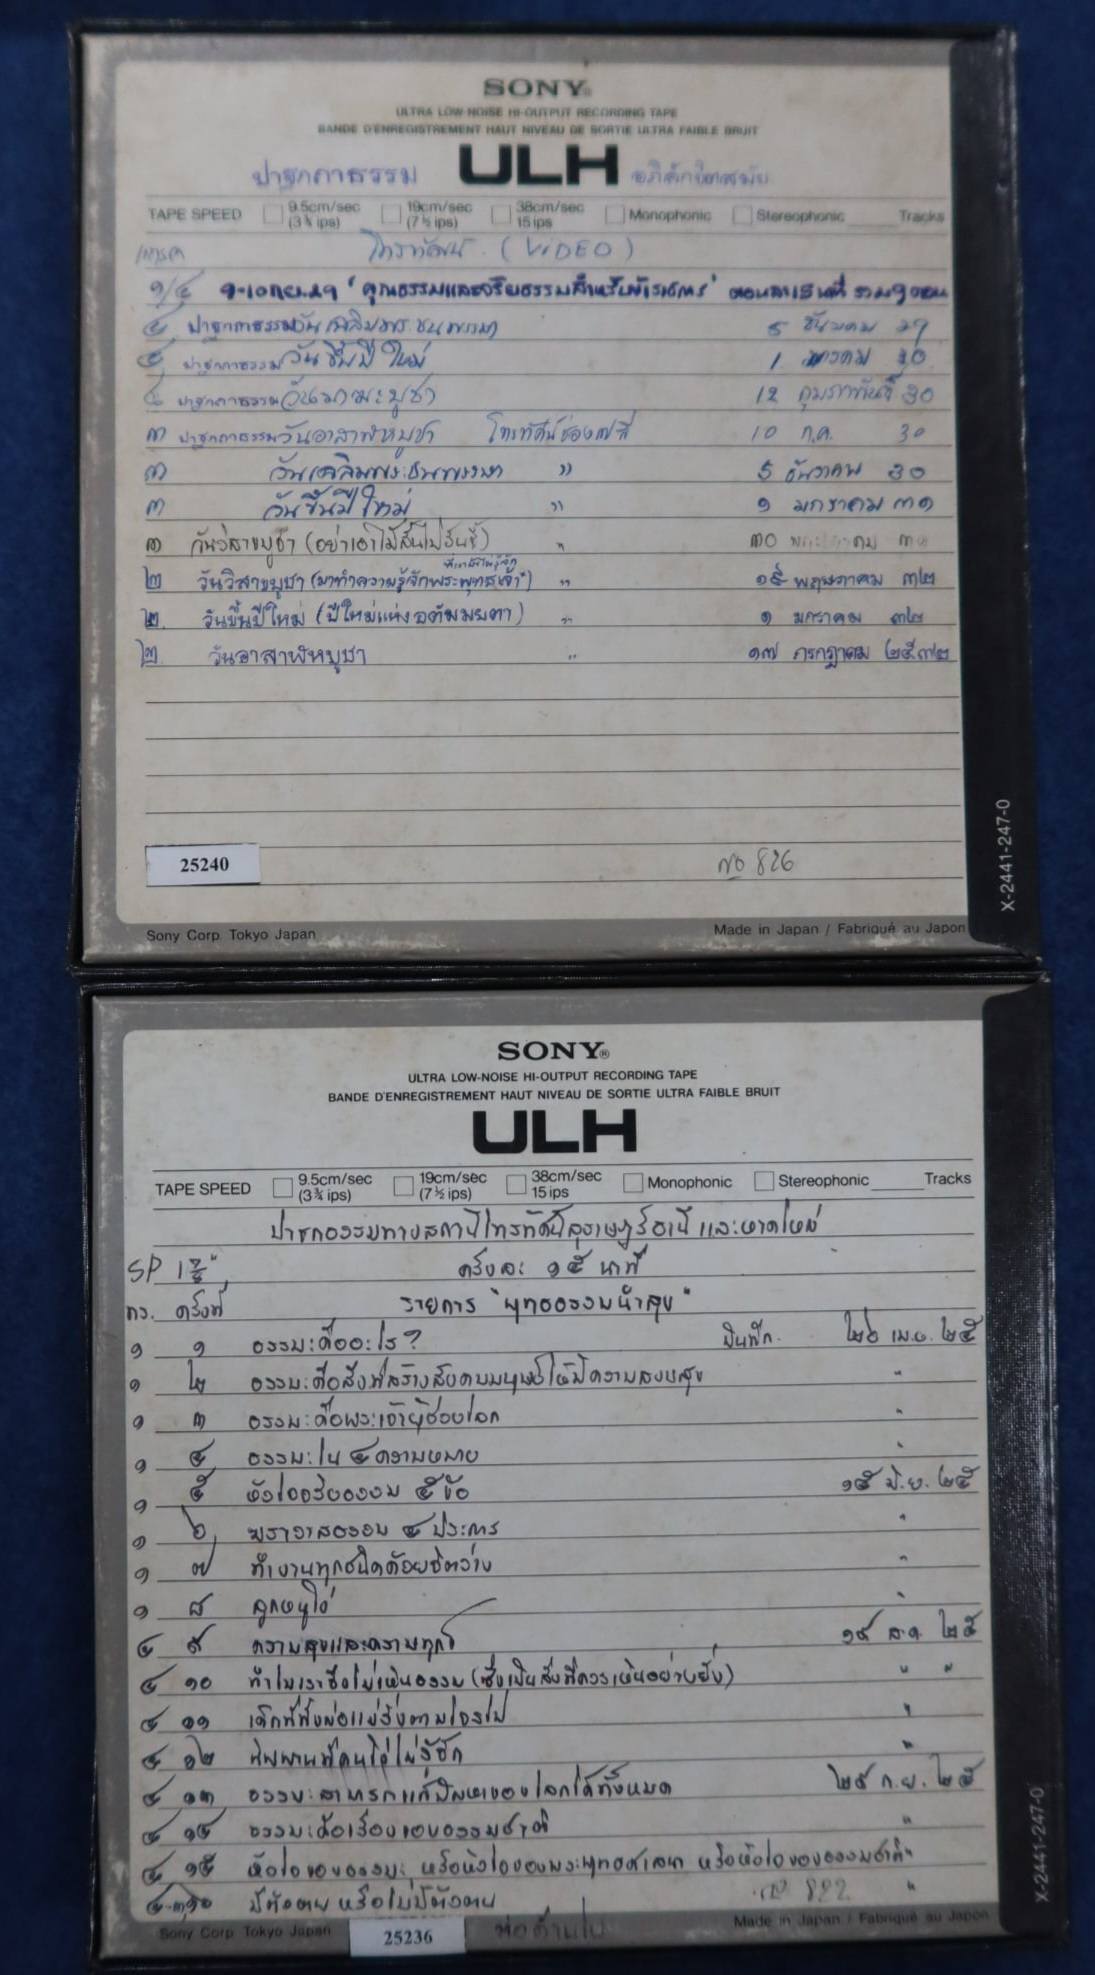 SONY®
ULTRA LOW-NOISE HI-OUTPUT RECORDING TAPE
BANDE D'ENREGISTREMENT HAUT NIVEAU DE SORTIE ULTRA FAIBLE BRUIT
ปาฐกถาธรรม ULH
TAPE SPEED 9.5cm/sec (3¾ ips) 19cm/sec (7½ ips) 38cm/sec 15 ips Monophonic Stereophonic Tracks
โทรทัศน์ (VIDEO)
๑/๔ ๑-๑๐ กย.๒๙ "คุณธรรมและจริยธรรมสำหรับข้าราชการ" ตอนละ 15 นาที รวม ๑๐ ตอน
๔ ปาฐกถาธรรมวันเฉลิมพระชนมพรรษา 5 ธันวาคม 29
๔ ปาฐกถาธรรมวันขึ้นปีใหม่ 1 มกราคม 30
๔ ปาฐกถาธรรมวันมาฆะบูชา 12 กุมภาพันธ์ 30
๓ ปาฐกถาธรรมวันอาสาฬหบูชา โทรทัศน์ช่อง 10 ก.ค. 30
๓ วันเฉลิมพระชนมพรรษา " 5 ธันวาคม 30
๓ วันขึ้นปีใหม่ " ๑ มกราคม ๓๑
๓ วันวิสาขบูชา (อย่าเอาไม้สั้นไปรันขี้) " ๓๐ พฤษภาคม ๓๑
๒ วันวิสาขบูชา (มาทำความรู้จักพระพุทธเจ้าที่เรายังไม่รู้จัก) " ๑๙ พฤษภาคม ๓๒
๒ วันขึ้นปีใหม่ (ปีใหม่แห่งอตัมมยตา) " ๑ มกราคม ๓๒
๒ วันอาสาฬหบูชา " ๑๗ กรกฎาคม ๒๕๓๒
25240
No 826
Sony Corp. Tokyo Japan Made in Japan / Fabriqué au Japon
X-2441-247-0
SONY®
ULTRA LOW-NOISE HI-OUTPUT RECORDING TAPE
BANDE D'ENREGISTREMENT HAUT NIVEAU DE SORTIE ULTRA FAIBLE BRUIT
ULH
TAPE SPEED 9.5cm/sec (3¾ ips) 19cm/sec (7½ ips) 38cm/sec 15 ips Monophonic Stereophonic Tracks
ปาฐกธรรมทางสถานีโทรทัศน์สุราษฎร์ธานี และหาดใหญ่
SP 1⅞" ครั้งละ ๑๕ นาที
ทร. ครั้งที่ รายการ "พุทธธรรมนำสุข"
๑ ๑ ธรรมะคืออะไร? บันทึก. ๒๖ เม.ย. ๒๕
๑ ๒ ธรรมะคือสิ่งที่สร้างสังคมมนุษย์ให้มีความสงบสุข "
๑ ๓ ธรรมะคือพระเจ้าผู้ช่วยโลก "
๑ ๔ ธรรมะใน ๔ ความหมาย "
๑ ๕ หัวใจจริยธรรม ๕ ข้อ ๑๕ มิ.ย. ๒๕
๑ ๖ ฆราวาสธรรม ๔ ประการ "
๑ ๗ ทำงานทุกชนิดด้วยจิตว่าง "
๑ ๘ ลูกหนูไง่ "
๔ ๙ ความสุขและความทุกข์ ๑๙ ส.ค. ๒๕
๔ ๑๐ ทำไมเราจึงไม่เห็นธรรม (ซึ่งเป็นสิ่งที่ควรเห็นอย่างยิ่ง) " "
๔ ๑๑ เด็กที่ทิ้งพ่อแม่วิ่งตามโจรไป "
๔ ๑๒ นิพพานที่คนไม่รู้จัก "
๔ ๑๓ ธรรมะสามารถแก้ปัญหาของโลกได้ทั้งหมด ๒๙ ก.ย. ๒๕
๔ ๑๔ ธรรมะคือเรื่องของธรรมชาติ "
๔ ๑๕ หัวใจของธรรมะ หรือหัวใจของพระพุทธศาสนา หรือหัวใจของธรรมชาติ "
มีตัวตน หรือไม่มีตัวตน No 822 "
Sony Corp Tokyo Japan 25236 Made in Japan / Fabriqué au Japon
X-2441-247-0